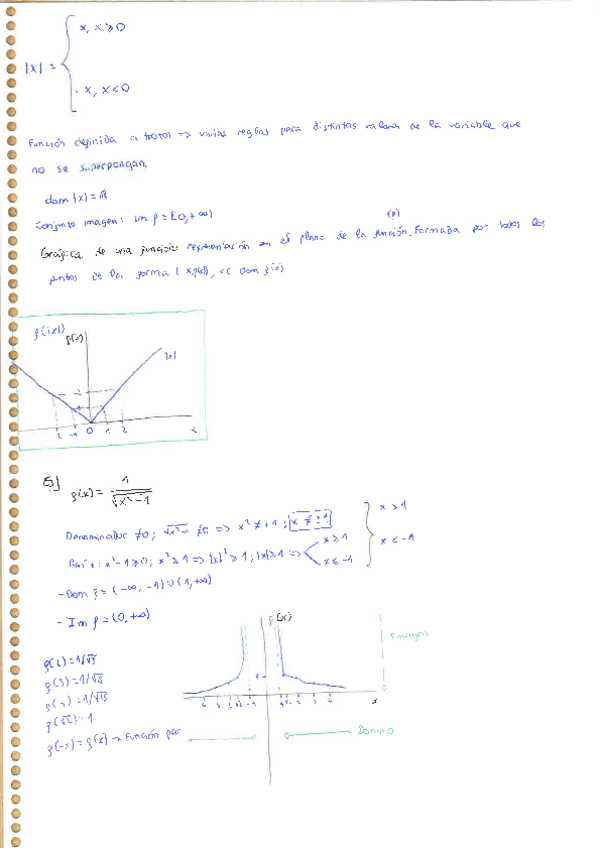 |x| = { x, x ≥ 0
- x, x < 0
Función definida a trozos => varias reglas para distintos valores de la variable que
no se superpongan.
dom |x| = ℝ
Conjunto imagen: im f = [0, +∞)
(f)
Gráfica de una función: representación en el plano de la función. Formada por todos los
puntos de la forma (x, f(x)), x ∈ dom f(x)
f(|x|)
f(x)
|x|
2
1
-2 -1 0 1 2
x
5] f(x) = 1/√(x² - 1)
Denominador ≠ 0; √(x² - 1) ≠ 0 => x² ≠ +1; x ≠ ±1
x > 1
Raíz: x² - 1 ≥ 0; x² ≥ 1 => |x|² ≥ 1; |x| ≥ 1 => x ≥ 1
x ≤ -1
x < -1
- Dom f = (-∞, -1) ∪ (1, +∞)
- Im f = (0, +∞)
f(x)
Imagen
f(2) = 1/√3
f(3) = 1/√8
f(4) = 1/√15
f(√2) = 1
f(-x) = f(x) -> Función par
Dominio